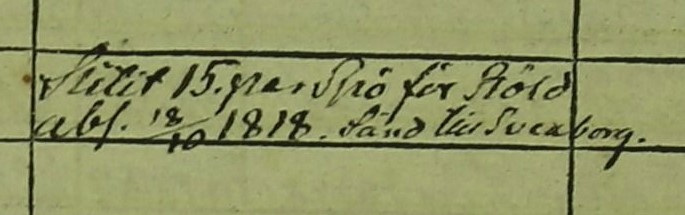 Slitit 15. par Spö för Stöld
abs. 18/10 1818. Sänd till Svenborg.